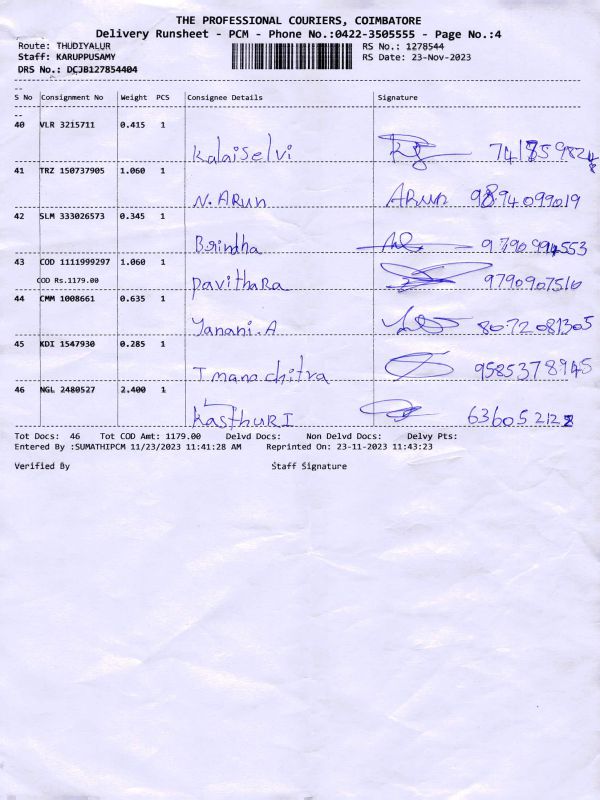 THE PROFESSIONAL COURIERS, COIMBATORE
Delivery Runsheet - PCM - Phone No.:0422-3505555 - Page No.:4
Route: THUDIYALUR RS No.: 1278544
Staff: KARUPPUSAMY RS Date: 23-Nov-2023
DRS No.: DCJB127854404
--
S No Consignment No Weight PCS Consignee Details Signature
--
40 VLR 3215711 0.415 1
Kalaiselvi
41 TRZ 150737905 1.060 1
N. ARUN ARUN 9894099019
42 SLM 333026573 0.345 1
Brindha 9790994553
43 COD 1111999297 1.060 1
COD Rs.1179.00
PavithaRa 9790907510
44 CMM 1008661 0.635 1
Yanani.A 8072081305
45 KDI 1547930 0.285 1
T manochitra 9585378945
46 NGL 2480527 2.400 1
KasthuRI
Tot Docs: 46 Tot COD Amt: 1179.00 Delvd Docs: Non Delvd Docs: Delvy Pts:
Entered By :SUMATHIPCM 11/23/2023 11:41:28 AM Reprinted On: 23-11-2023 11:43:23
Verified By Staff Signature